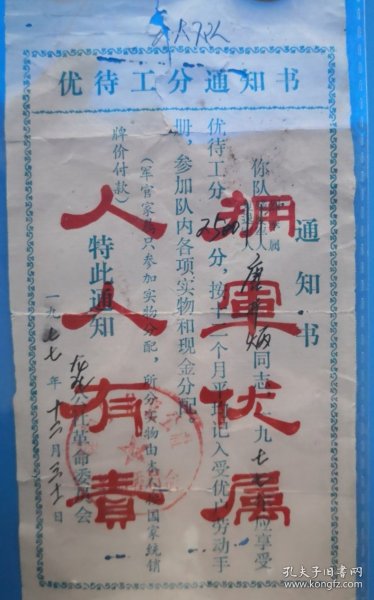 优待工分通知书
通知书
你队唐 同志一九七七年应享受
优待工分2500分，按十二个月平均记入受优待劳动手
册，参加队内各项实物和现金分配。
（军官家属只参加实物分配，所分实物由本人按国家统销
牌价付款）
特此通知
公社革命委员会
一九七七年十二月三十一日
拥军优属
人人有责
孔夫子旧书网